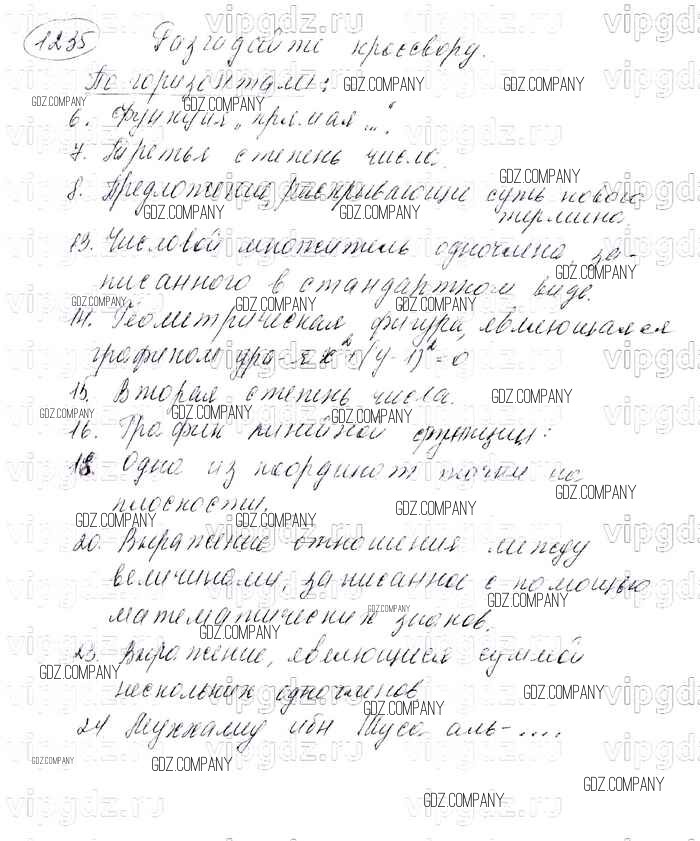 1235 Разгадайте кроссворд.
По горизонтали:
6. Функция „прямая ...".
7. Третья степень числа.
8. Предложение, раскрывающие суть нового
термина
13. Числовой множитель одночлена, за-
писанного в стандартном виде.
14. Геометрическая фигура, являющаяся
графиком ура-
15. Вторая степень числа.
16. График линейной функции:
18. Одна из координат точки на
плоскости.
20. Выражение отношения между
величинами, записанное с помощью
математических знаков.
23. Выражение, являющиеся суммой
нескольких одночленов
24 Мухамид ибн Муса аль-....
GDZ.COMPANY
vipgdz.ru